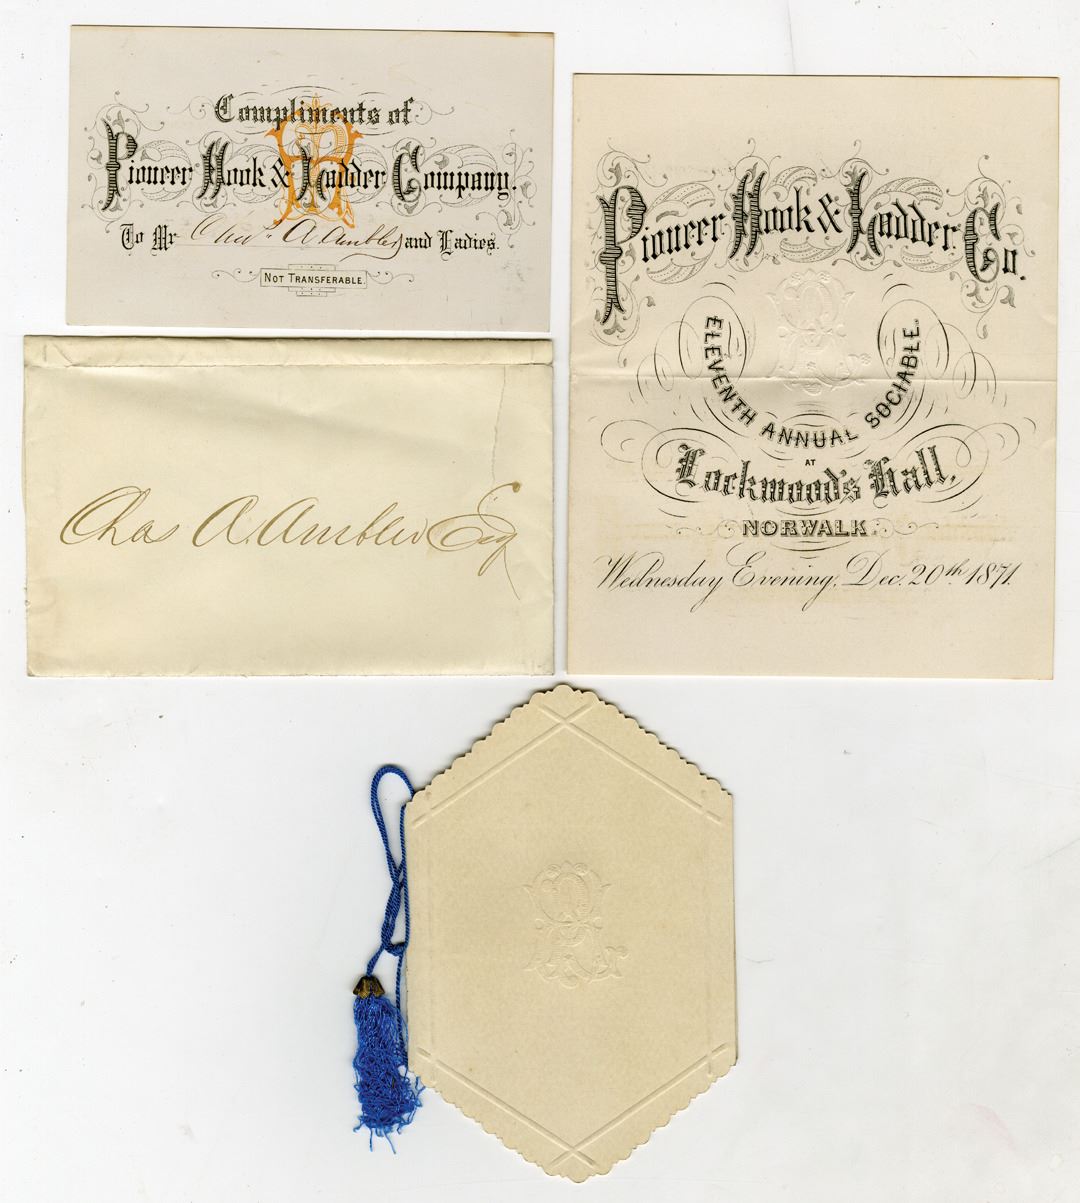 Compliments of
Pioneer Hook & Ladder Company.
To Mr Chas. A. Ambler and Ladies.
NOT TRANSFERABLE.
Chas A. Ambler Esq
Pioneer Hook & Ladder Co.
ELEVENTH ANNUAL SOCIABLE.
AT
Lockwood's Hall,
NORWALK.
Wednesday Evening, Dec. 20th 1871.